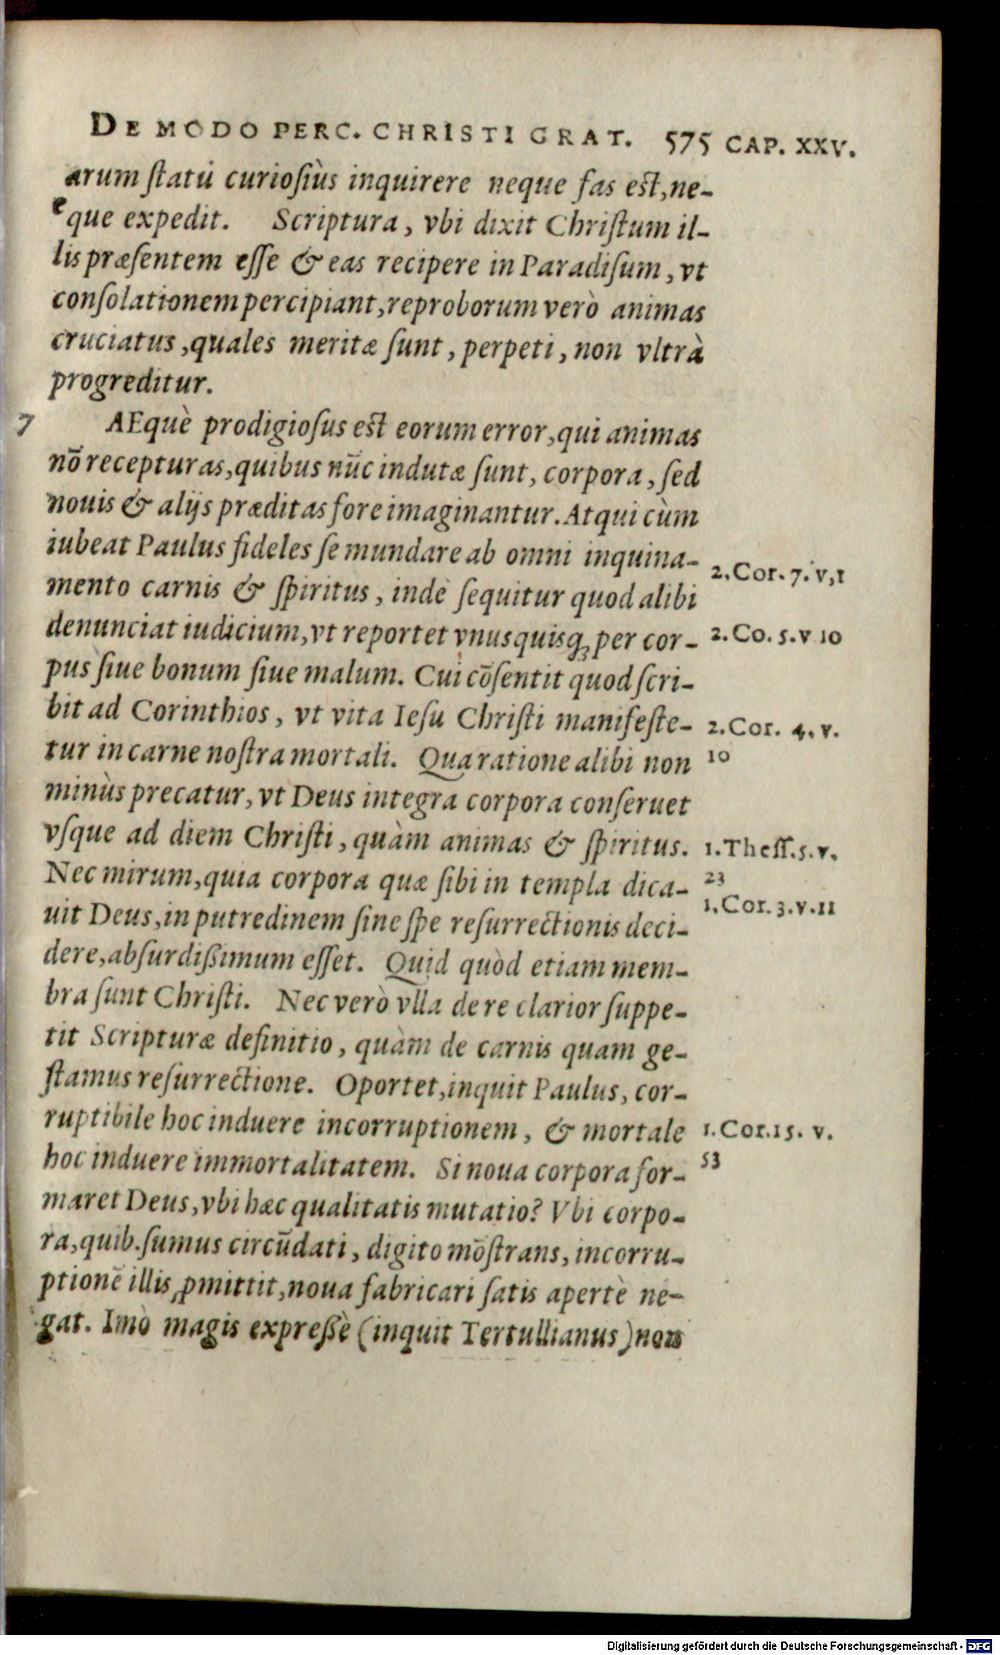 DE MODO PERC. CHRISTI GRAT. 575 CAP. XXV.
arum ſtatū curioſiùs inquirere neque fas est, ne-
que expedit. Scriptura, vbi dixit Chriſtum il-
lis præſentem eſſe & eas recipere in Paradiſum, vt
conſolationem percipiant, reproborum verò animas
cruciatus, quales meritæ ſunt, perpeti, non vltrà
progreditur.
7 AEquè prodigioſus est eorum error, qui animas
nō recepturas, quibus nūc indutæ ſunt, corpora, ſed
nouis & alijs præditas fore imaginantur. Atqui cùm
iubeat Paulus fideles ſe mundare ab omni inquina-
2. Cor. 7. v, 1
mento carnis & ſpiritus, inde ſequitur quod alibi
denunciat iudicium, vt reportet vnusquisq; per cor-
2. Co. 5. v 10
pus ſiue bonum ſiue malum. Cui cōſentit quod ſcri-
bit ad Corinthios, vt vita Ieſu Chriſti manifeſte-
2. Cor. 4. v.
10
tur in carne noſtra mortali. Qua ratione alibi non
minùs precatur, vt Deus integra corpora conſeruet
vſque ad diem Chriſti, quàm animas & ſpiritus.
1. Theſſ. 5. v.
23
Nec mirum, quia corpora quæ ſibi in templa dica-
1. Cor. 3. v. 11
uit Deus, in putredinem ſine ſpe reſurrectionis deci-
dere, abſurdißimum eſſet. Quid quòd etiam mem-
bra ſunt Chriſti. Nec verò vlla de re clarior ſuppe-
tit Scripturæ definitio, quàm de carnis quam ge-
ſtamus reſurrectione. Oportet, inquit Paulus, cor-
ruptibile hoc induere incorruptionem, & mortale
1. Cor. 15. v.
53
hoc induere immortalitatem. Si noua corpora for-
maret Deus, vbi hæc qualitatis mutatio? Vbi corpo-
ra, quib. ſumus circūdati, digito mōſtrans, incorru-
ptionē illis ꝓmittit, noua fabricari ſatis apertè ne-
gat. Imò magis expreßè (inquit Tertullianus) non
Digitalisierung gefördert durch die Deutsche Forschungsgemeinschaft - DFG